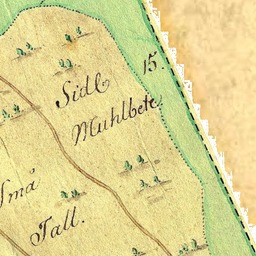 15.
Sidl
Muhlbete.
Små
Tall.